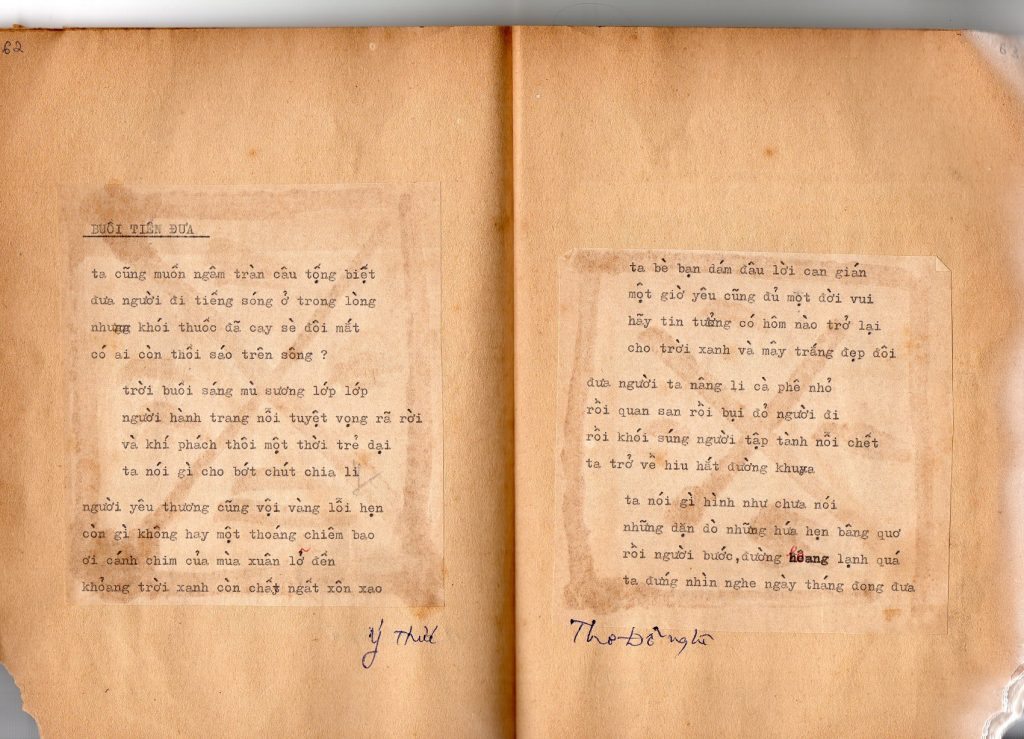 62
BUỔI TIỄN ĐƯA
ta cũng muốn ngâm tràn câu tống biệt
đưa người đi tiếng sóng ở trong lòng
nhưng khói thuốc đã cay sè đôi mắt
có ai còn thổi sáo trên sông ?
trời buổi sáng mù sương lớp lớp
người hành trang nỗi tuyệt vọng rã rời
và khí phách thôi một thời trẻ dại
ta nói gì cho bớt chút chia li
người yêu thương cũng vội vàng lỗi hẹn
còn gì không hay một thoáng chiêm bao
ơi cánh chim của mùa xuân lỡ đến
khoảng trời xanh còn chất ngất xôn xao
Ý Thức
62
ta bè bạn dám đâu lời can gián
một giờ yêu cũng đủ một đời vui
hãy tin tưởng có hôm nào trở lại
cho trời xanh và mây trắng đẹp đôi
đưa người ta nâng li cà phê nhỏ
rồi quan san rồi bụi đỏ người đi
rồi khói súng người tập tành nỗi chết
ta trở về hiu hắt đường khuya
ta nói gì hình như chưa nói
những dặn dò những hứa hẹn bâng quơ
rồi người bước,đường hoang lạnh quá
ta đứng nhìn nghe ngày tháng đong đưa